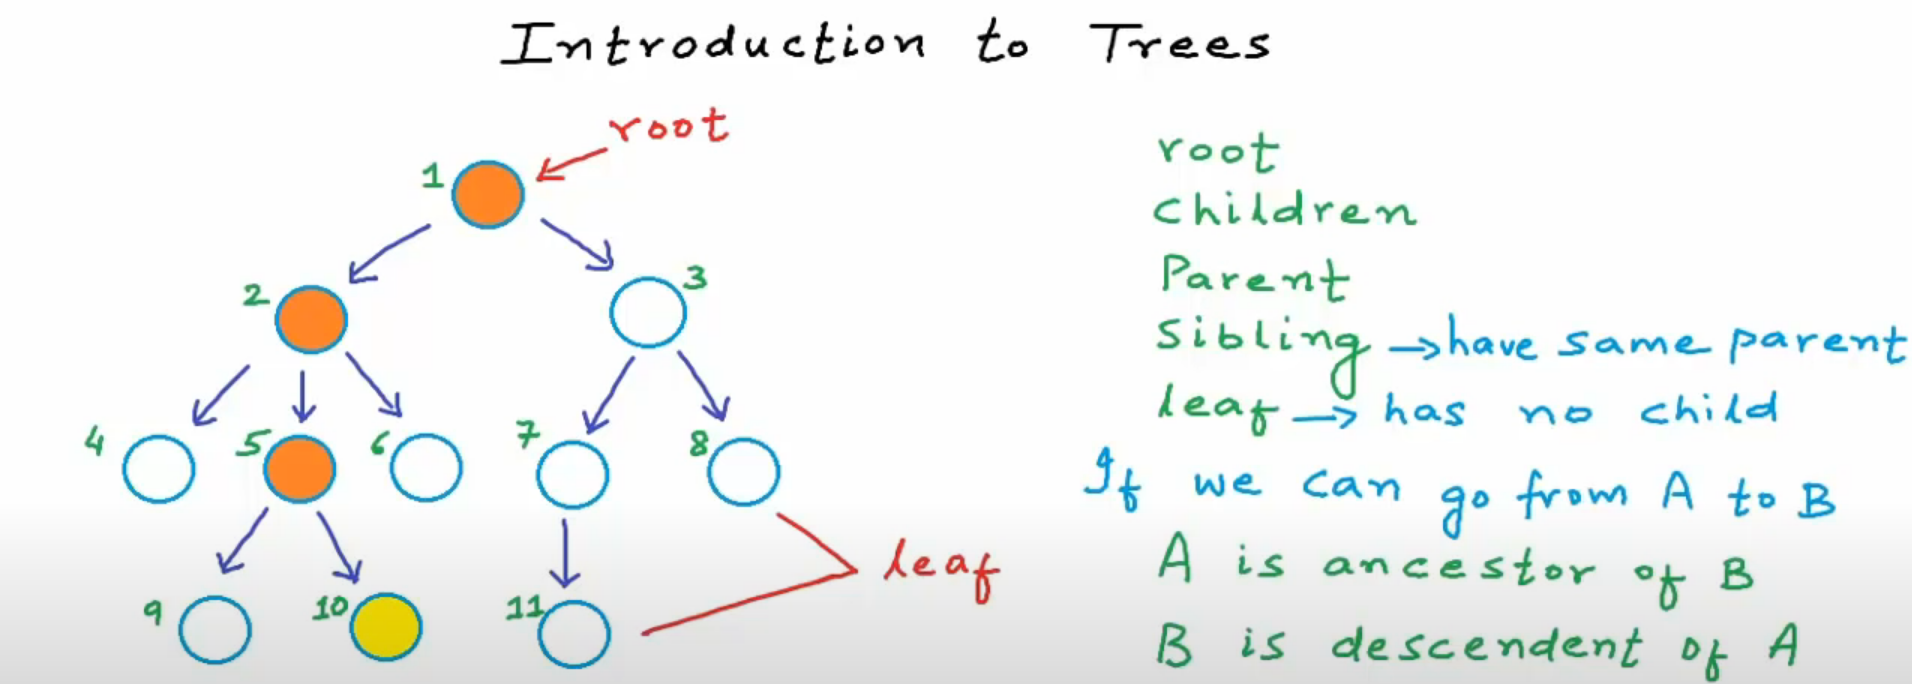 Introduction to Trees
root
1
2
3
4
5
6
7
8
9
10
11
leaf
root
children
Parent
Sibling → have same parent
leaf → has no child
If we can go from A to B
A is ancestor of B
B is descendent of A